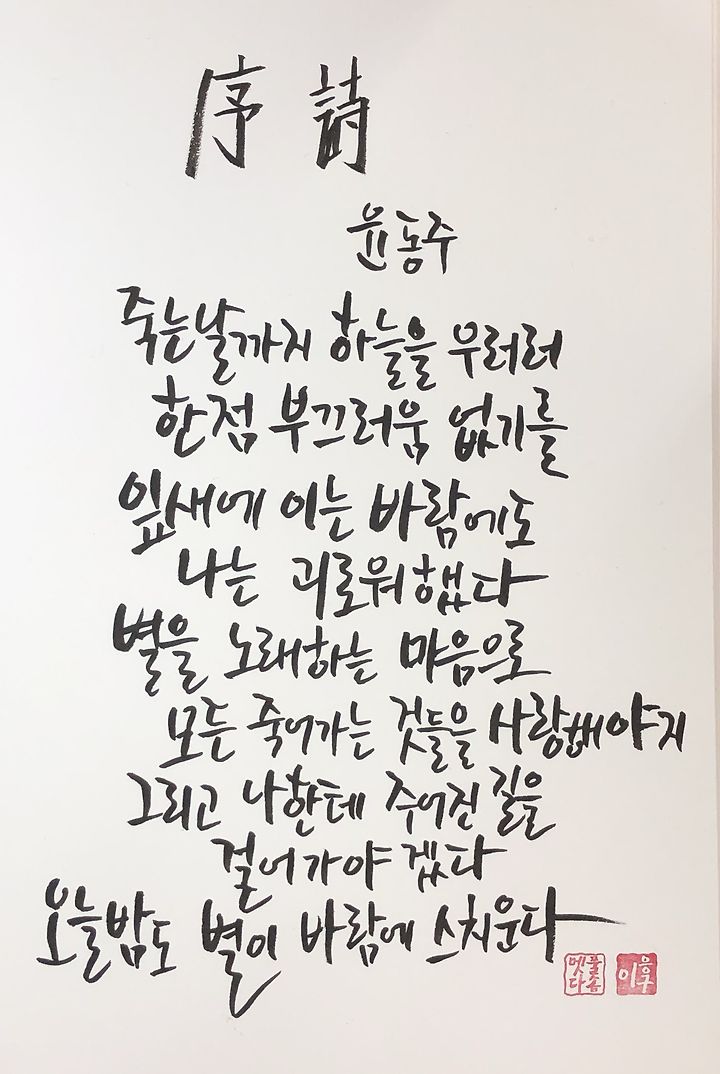 序 詩
윤동주
죽는날까지 하늘을 우러러
한점 부끄러움 없기를
잎새에 이는 바람에도
나는 괴로워했다
별을 노래하는 마음으로
모든 죽어가는 것들을 사랑해야지
그리고 나한테 주어진 길을
걸어가야겠다
오늘밤도 별이 바람에 스치운다